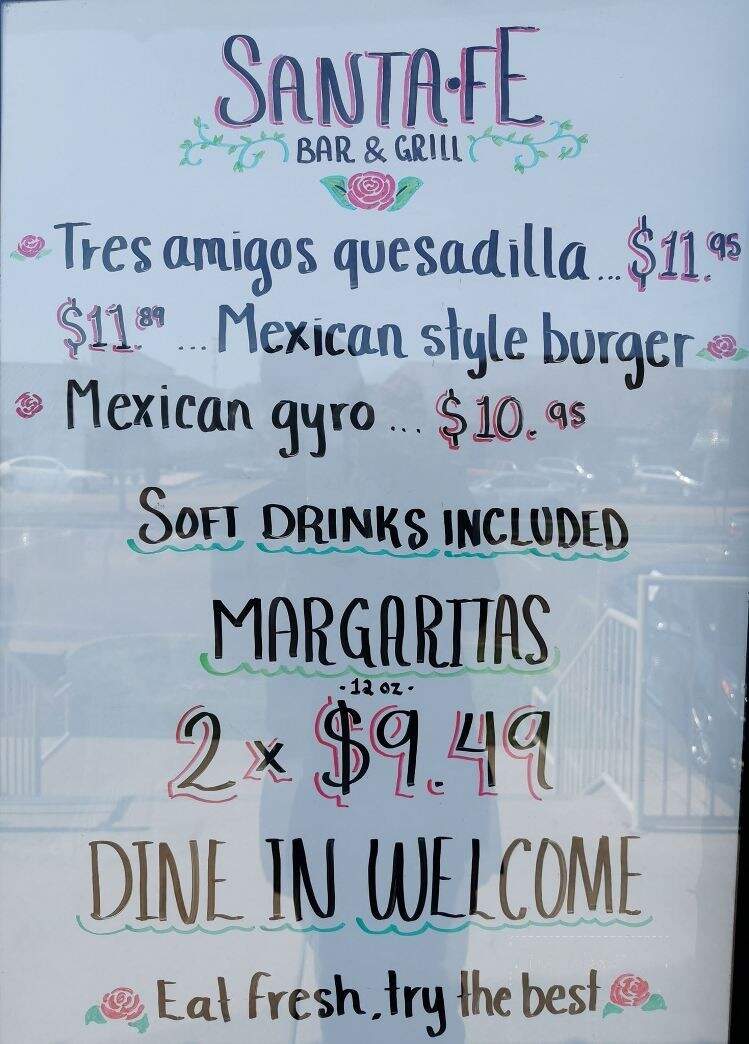 SANTA·FE
BAR & GRILL
Tres amigos quesadilla...$11.95
$11.89...Mexican style burger
Mexican gyro...$10.95
SOFT DRINKS INCLUDED
MARGARITAS
·12 oz·
2 x $9.49
DINE IN WELCOME
Eat fresh, try the best